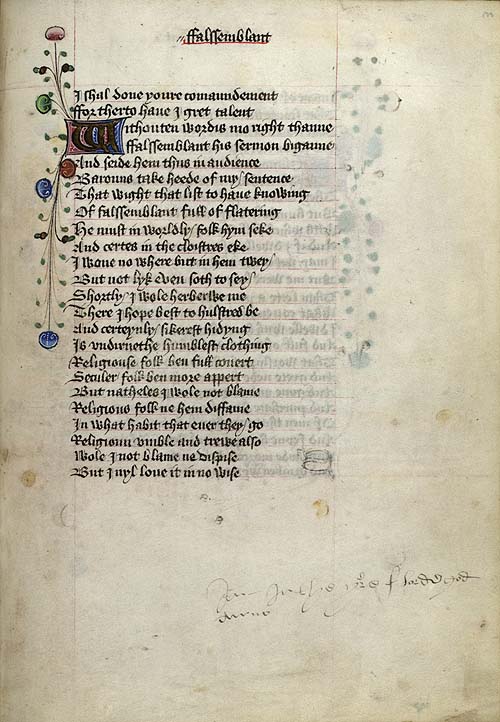 ffalssemblant
I shal done youre comaundement
ffor therto haue I gret talent
Withouten wordis mo right thanne
ffalssemblant his sermon biganne
And seide hem thus in audience
Barouns take heede of my sentence
That wight that list to haue knowing
Of falssemblant full of flatering
He must in worldly folk hym seke
And certes in the cloistres eke
I wone no where but in hem twey
But not lyk even soth to sey
Shortly I wole herberwe me
There I hope best to hulstred be
And certeynly sikerest hidyng
Is vndirnethe humblest clothing
Religiouse folk ben full couert
Seculer folk ben more appert
But natheles I wole not blame
Religious folk ne hem diffame
In what habit that euer they go
Religioun vmble and trewe also
Wole I not blame ne dispise
But I nyl loue it in no wise